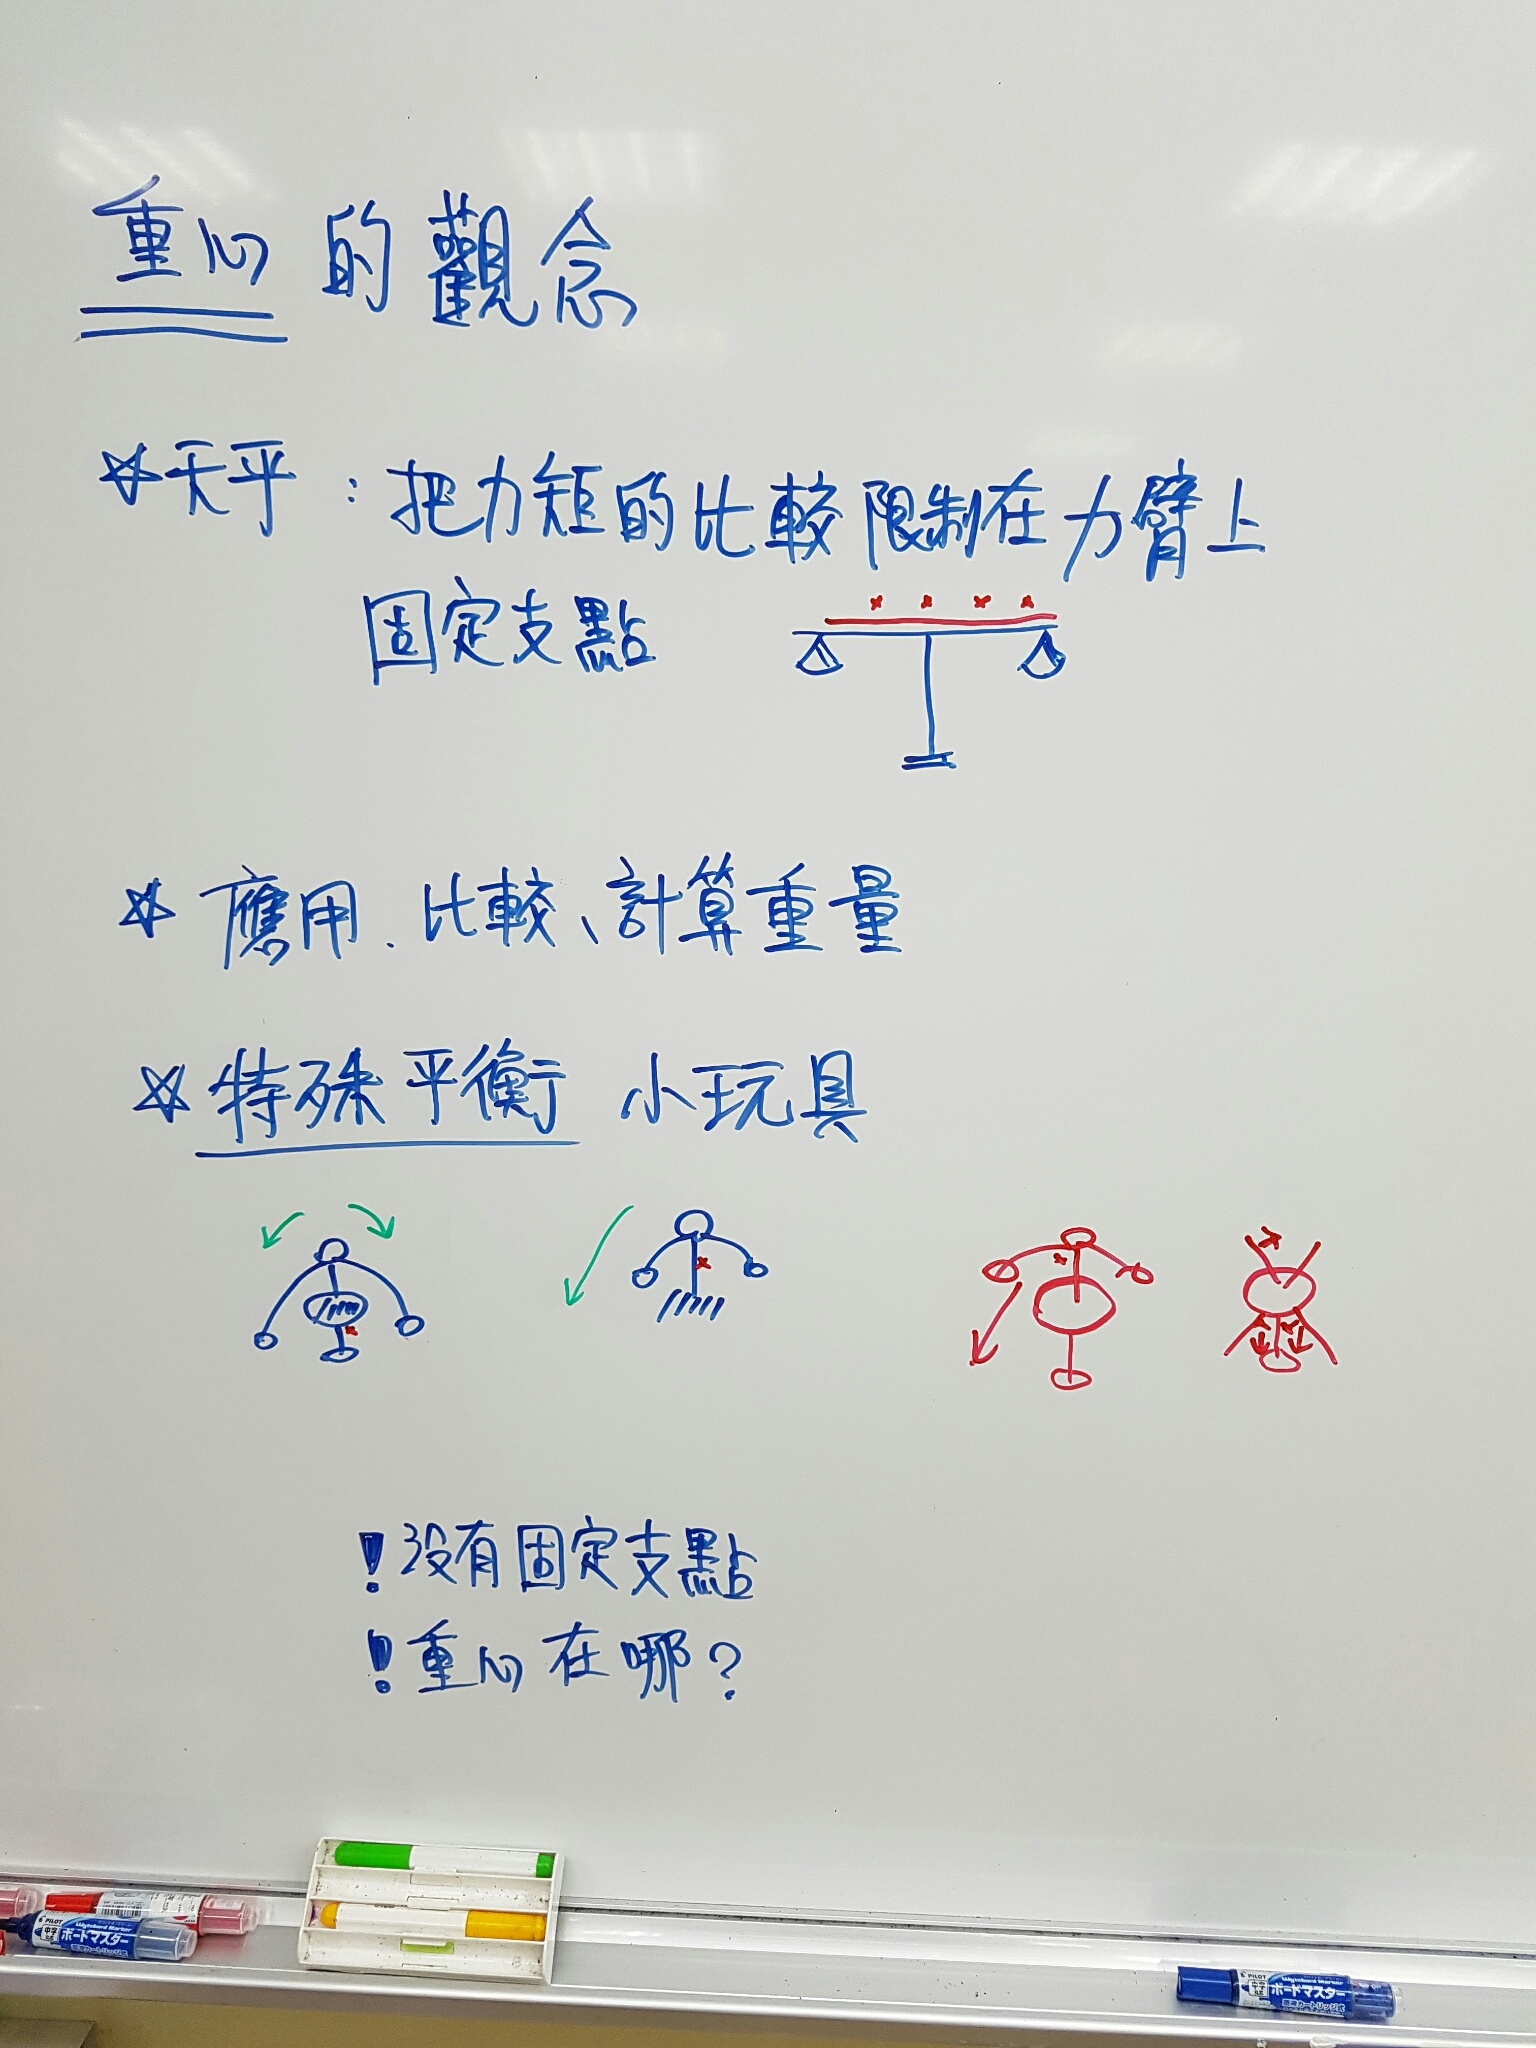 重心的觀念
☆天平：把力矩的比較限制在力臂上
固定支點
☆應用、比較、計算重量
☆特殊平衡 小玩具
！沒有固定支點
！重心在哪？
PILOT
Wyteboard Marker
ボードマスター
PILOT
Wyteboard Marker
ボードマスター